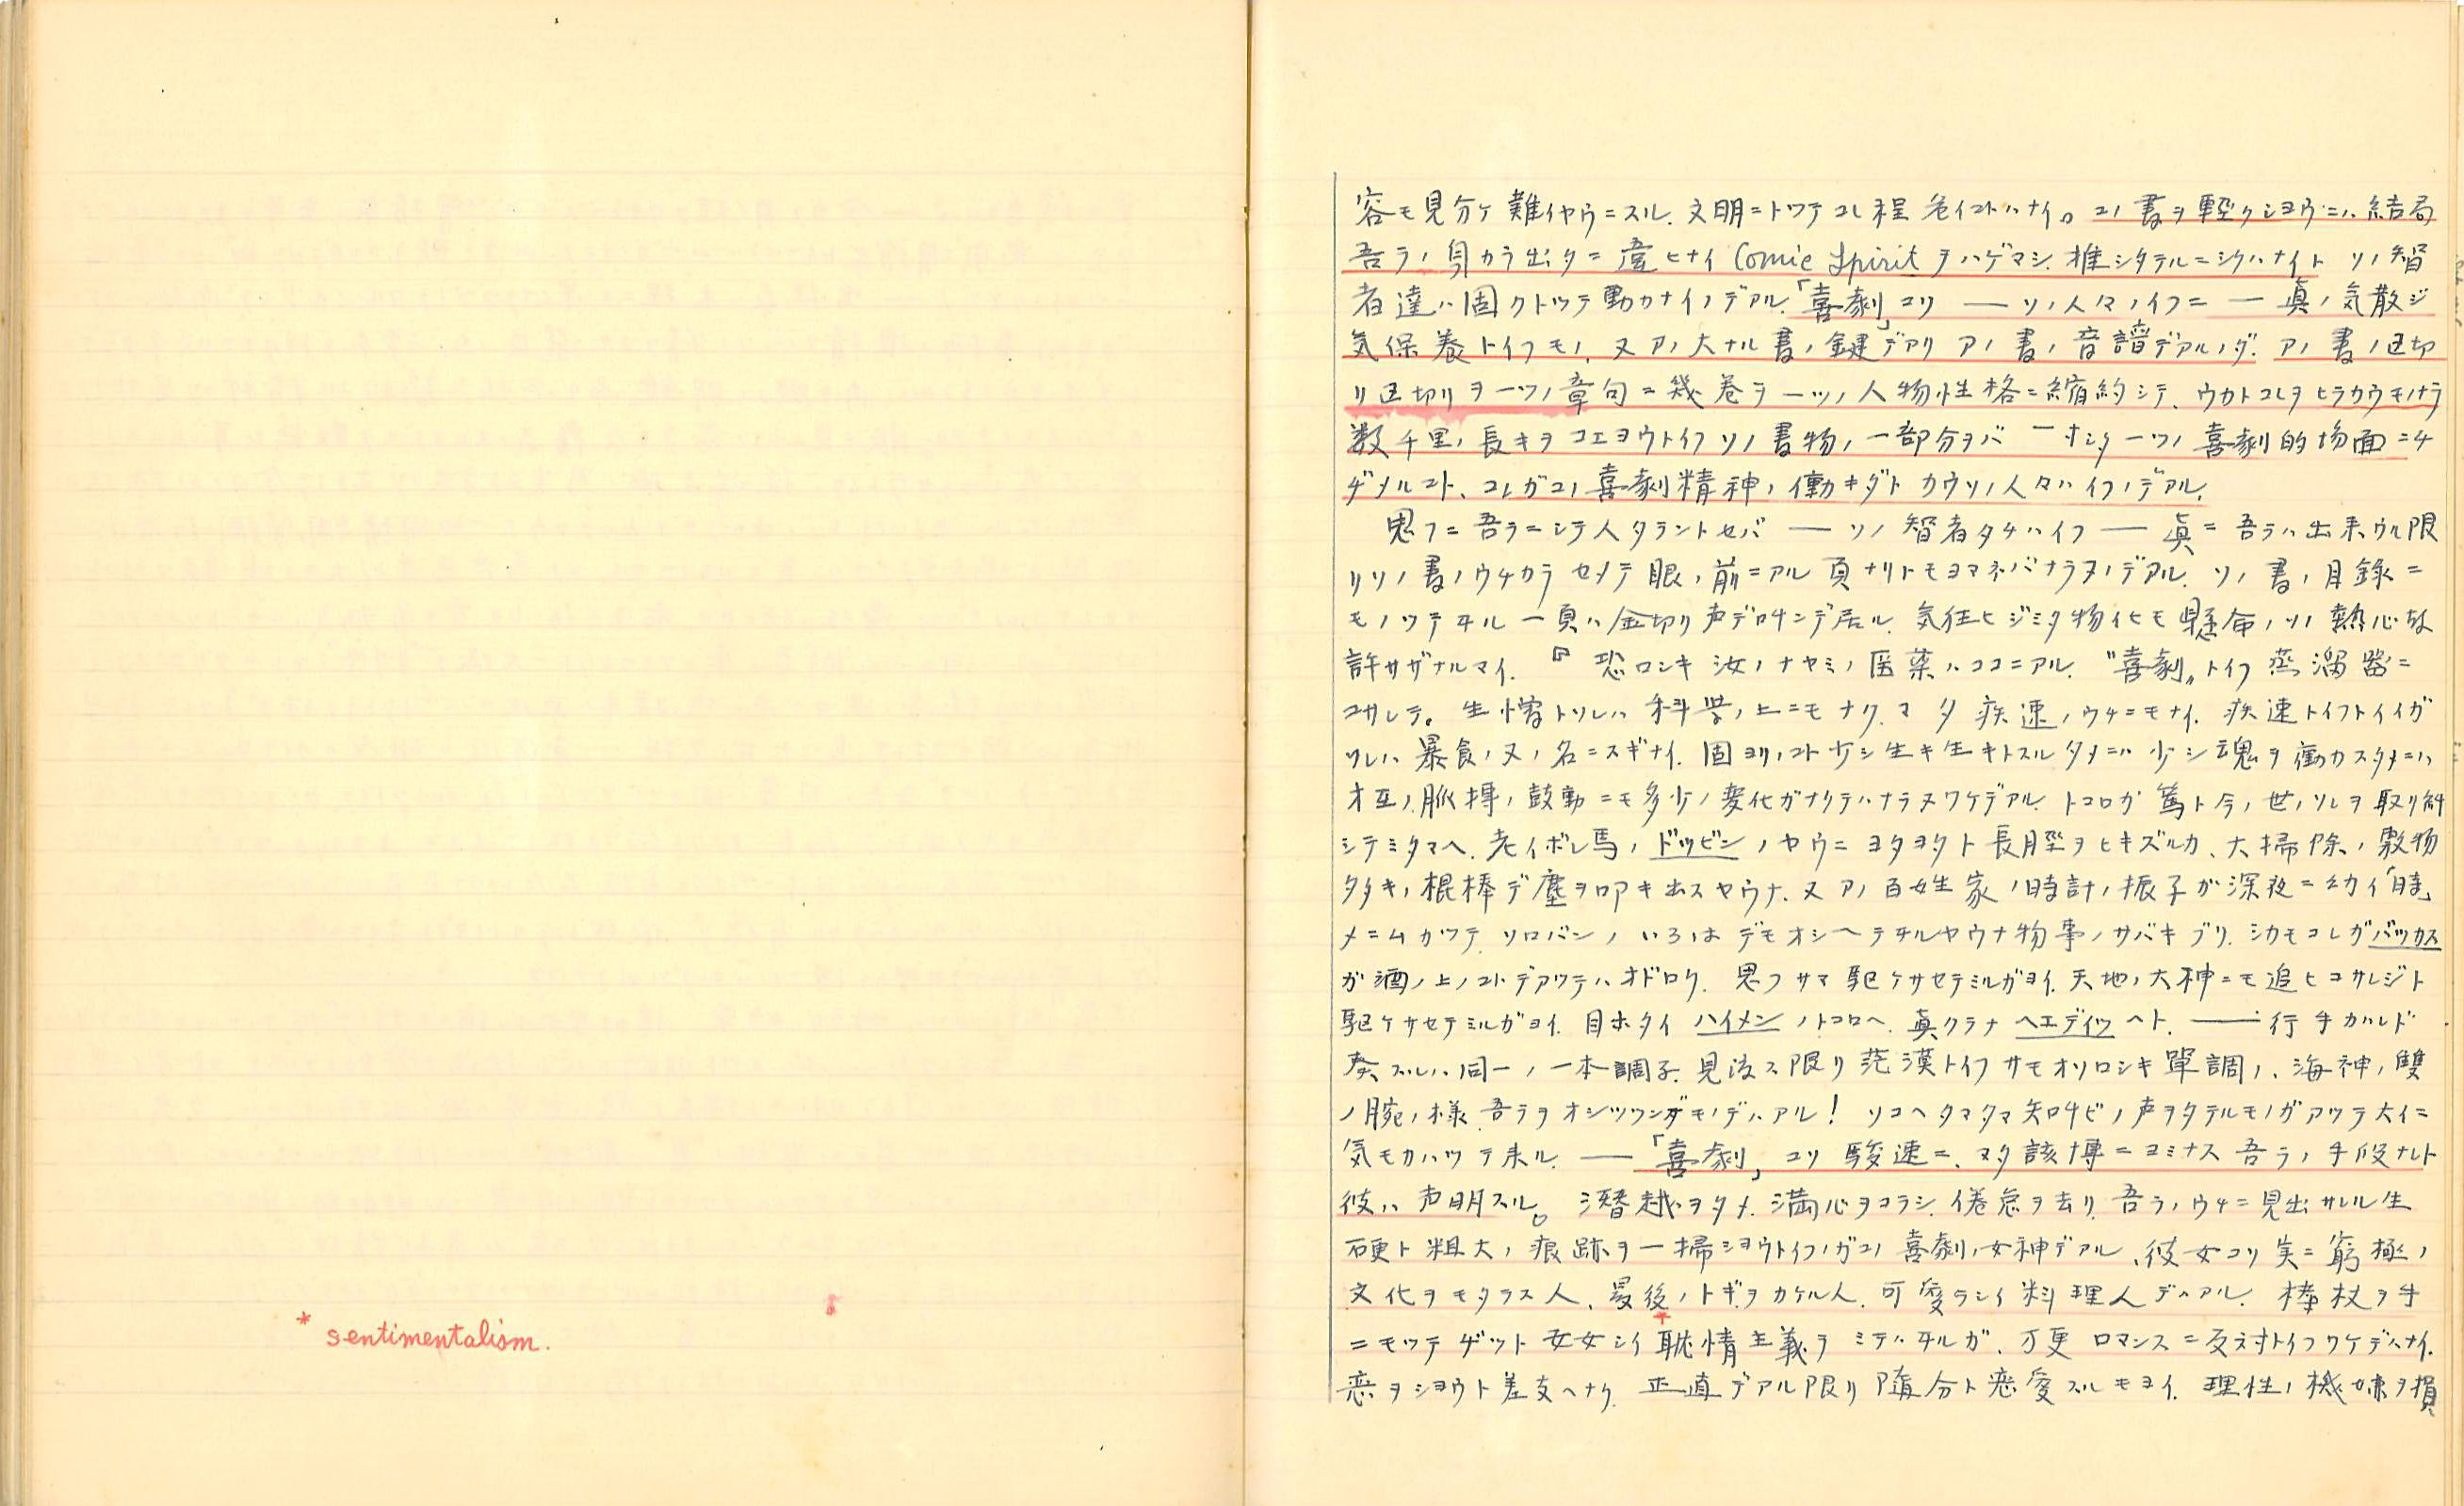 * sentimentalism.
容モ見分ケ難イヤウニスル. 文明ニトツテコレ程危イコトハナイ。コノ書ヲ軽クシヨウニハ結局
吾ラノ身カラ出タニ違ヒナイ Comic Spirit ヲハゲマシ. 推シタテルニシクハナイト ソノ智
者達ハ固クトツテ動カナイノデアル.「喜劇」コソ ── ソノ人々ノイフニ ─ 真ノ気散ジ
気保養トイフモノ. 又アノ大ナル書ノ鍵デアリ アノ書ノ音譜デアルノダ. アノ書ノ区切
リ区切リヲ一ツノ章句ニ幾巻ヲ一ツノ人物性格ニ縮約シテ、ウカトコレヲヒラカウモノナラ
数千里ノ長キヲコエヨウトイフソノ書物ノ一部分ヲバ 一ホンノ一ツノ喜劇的場面ニチ
ヂメルコト、コレガコノ喜劇精神ノ働キダト カウソノ人々ハイフノデアル.
思フニ吾ラニシテ人タラントセバ ── ソノ智者タチハイフ ── 真ニ吾ラハ出来ウル限
リソノ書ノウチカラ セメテ眼ノ前ニアル頁ナリトモヨマネバナラヌノデアル. ソノ書ノ目録ニ
モノツテヰル一頁ハ金切リ声デ叫ンデ居ル. 気狂ヒジミタ物イヒモ懸命ノソノ熱心故
許サザナルマイ. 『恐ロシキ汝ノナヤミノ医薬ハココニアル. "喜劇〟トイフ蒸溜器ニ
コサレテ。生憎トソレハ科学ノ上ニモナク. マタ疾速ノウチニモナイ. 疾速トイフトイイガ
ソレハ暴食ノ又ノ名ニスギナイ. 固ヨリノコト少シ生キ生キトスルタメニハ 少シ魂ヲ働カスタメニハ
オ互ノ脈搏ノ鼓動ニモ多少ノ変化ガナクテハナラヌワケデアル. トコロガ篤ト今ノ世ノソレヲ取リ糾
シテミタマヘ. 老イボレ馬ノドツビンノヤウニ ヨタヨタト長脛ヲヒキズルカ、大掃除ノ敷物
タタキノ棍棒デ塵ヲ叩キ出スヤウナ. 又アノ百姓家ノ時計ノ振子ガ深夜ニ幼イ「時」
メニムカツテ ソロバンノいろはデモオシヘテヰルヤウナ物事ノサバキブリ. シカモコレガバツカス
ガ酒ノ上ノコトデアツテハオドロク. 思フサマ駆ケサセテミルガヨイ. 天地ノ大神ニモ追ヒコサレジト
駆ケサセテミルガヨイ. 目ホタイ ハイメンノトコロヘ. 真クラナ ヘエデイツヘト. ── 行手カハレド
奏スルハ同一ノ一本調子. 見渡ス限リ茫漠トイフサモオソロシキ単調ノ、海神ノ雙
ノ腕ノ様 吾ラヲオシツツンダモノデハアル! ソコヘタマタマ知叫ビノ声ヲタテルモノガアツテ大イニ
気モカハツテ来ル. ──「喜劇」コソ駿速ニ、マタ該博ニヨミナス吾ラノ手段ナルト
彼ハ声明スル。潜越ヲタメ. 満心ヲコラシ. 倦怠ヲ去リ 吾ラノウチニ見出サレル生
硬ト粗大ノ痕跡ヲ一掃シヨウトイフノガコノ喜劇ノ女神デアル、彼女コソ実ニ窮極ノ
文化ヲモタラス人、最後ノトギヲカケル人. 可愛ラシイ料理人デハアル. 棒杖ヲ手
ニモツテヂツト女女シイ耽情主義ヲミテハヰルガ、万更ロマンスニ反対トイフワケデハナイ.
恋ヲシヨウト差支ヘナク. 正直デアル限リ随分ト恋愛スルモヨイ. 理性ノ機嫌ヲ損